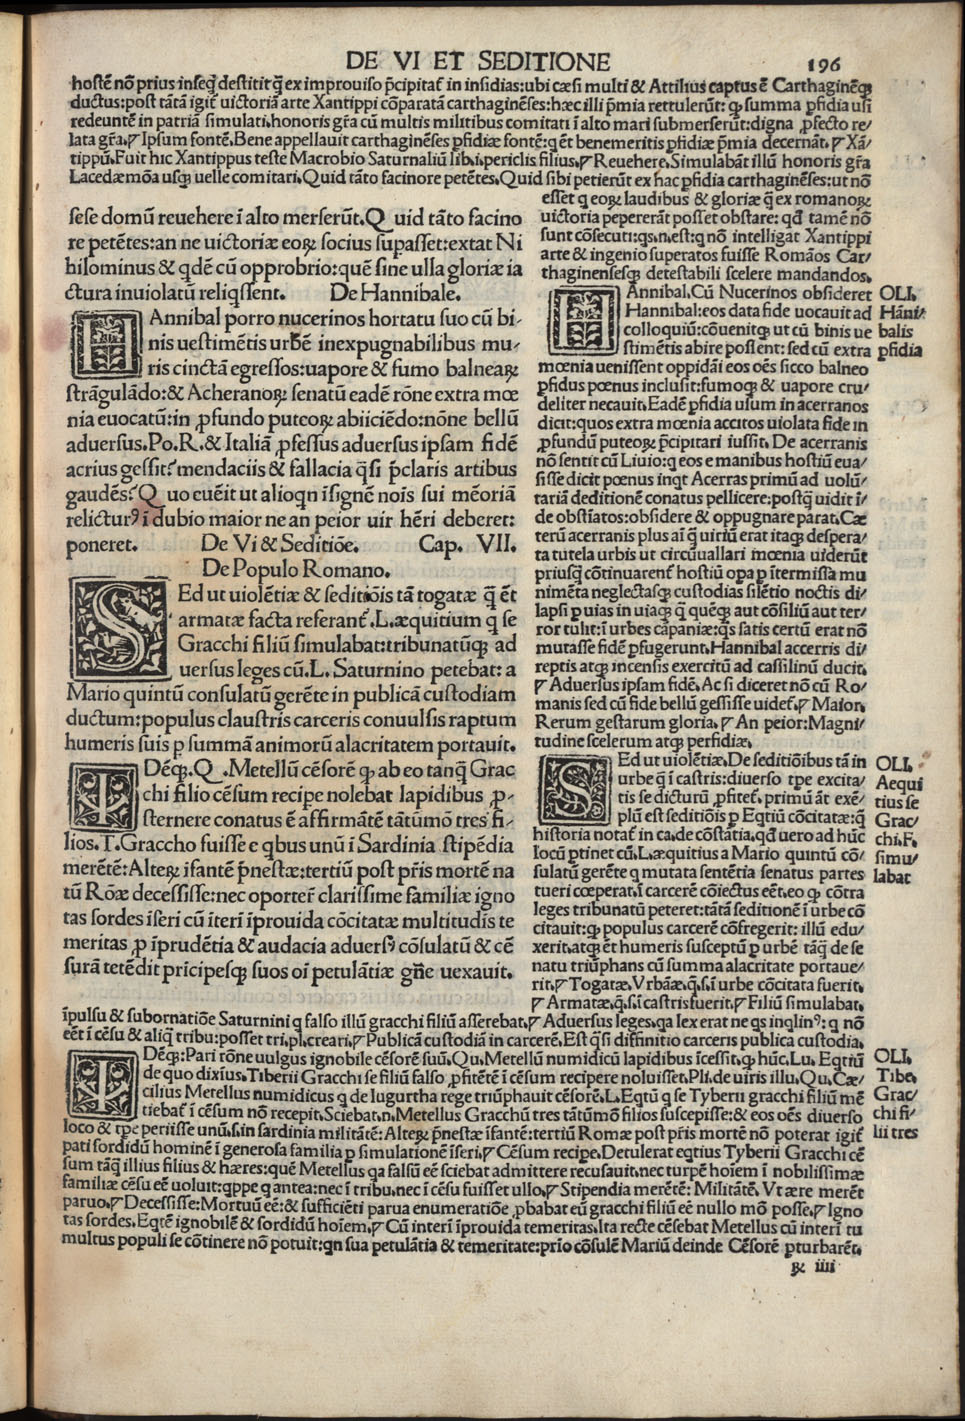 DE VI ET SEDITIONE
196
hostē nō prius inseq̄ destitit q̄ ex improuiso p̄cipitat͛ in insidias: ubi cæsi multi & Attilius captus ē Carthaginēseꝗ
ductus: post tātā igit͛ uictoriā arte Xantippi cōparatā carthaginēses: hæc illi p̄mia rettulerūt: ꝙ summa ꝑfidia usi
redeuntē in patriā simulati, honoris gr̄a cū multis militibus comitati ī alto mari submerserūt: digna ꝓfecto re/
lata gr̄a. ¶ Ipsum fontē. Bene appellauit carthaginēses ꝑfidiæ fontē: q̄ et benemeritis ꝑfidiæ p̄mia decernāt. ¶ Xā/
tippū. Fuit hic Xantippus teste Macrobio Saturnaliū lib. i. periclis filius. ¶ Reuehere. Simulabāt illū honoris gr̄a
Lacedæmōa usq; uelle comitari. Quid tāto facinore petētes. Quid sibi petierūt ex hac ꝑfidia carthaginēses: ut nō
sese domū reuehere ī alto merserūt. Quid tāto facino
re petētes: an ne uictoriæ eoꝝ socius supasset: extat Ni
hilominus & qdē cū opprobrio: quē sine ulla gloriæ ia
ctura inuiolatū reliqssent. De Hannibale.
HAnnibal porro nucerinos hortatu suo cū bi-
nis uestimētis urbē inexpugnabilibus mu/
ris cinctā egressos: uapore & fumo balneaꝝ
strāgulādo: & Acheranoꝝ senatū eadē rōne extra mœ
nia euocatū: in ꝓfundo puteoꝝ abiiciēdo: nōne bellū
aduersus. Po. R. & Italiā ꝓfessus aduersus ipsam fidē
acrius gessit? mendaciis & fallacia q̄si p̄claris artibus
gaudēs? Quo euēit ut alioqn īsignē nois sui mēoriā
relicturꝰ ī dubio maior ne an peior uir hēri deberet:
poneret. De Vi & Seditiōe. Cap. VII.
De Populo Romano.
SEd ut uiolētiæ & seditiōis tā togatæ q̄ ēt
armatæ facta referant͛. L. æquitium q se
Gracchi filiū simulabat: tribunatūq; ad
uersus leges cū. L. Saturnino petebat: a
Mario quintū consulatū gerēte in publicā custodiam
ductum: populus claustris carceris conuulsis raptum
humeris suis ꝑ summā animorū alacritatem portauit.
IDēq;. Q. Metellū cēsorē ꝙ ab eo tanq̄ Grac
chi filio cēsum recipe nolebat lapidibus ꝓ-
sternere conatus ē affirmātē tātūmō tres fi-
lios. T. Graccho fuisse e qbus unū ī Sardinia stipēdia
merētē: Alteꝝ īfantē p̄nestæ: tertiū post pr̄is mortē na
tū Rōæ decessisse: nec oporter̄ clarissime familiæ igno
tas sordes īseri cū īterī īprouida cōcitatæ multitudīs te
meritas ꝓ īprudētia & audacia aduersꝰ cōsulatū & cē
surā tetēdit prīcipesq; suos oī petulātiæ gn̄e uexauit.
esset q eoꝝ laudibus & gloriæ q̄ ex romanoꝝ
uictoria pepererāt posset obstare: qd tamē nō
sunt cōsecuti: qs. n. est: q nō intelligat Xantippi
arte & ingenio superatos fuisse Romāos Car/
thaginensesq; detestabili scelere mandandos.
HAnnibal. Cū Nucerinos obsideret
Hannibal: eos data fide uocauit ad
colloquiū: cōuenitq; ut cū binis ue
stimētis abire possent: sed cū extra
mœnia uenissent oppidāi eos oēs sicco balneo
ꝑfidus pœnus inclusit: fumoq; & uapore cru/
deliter necauit. Eadē ꝑfidia usum in acerranos
dicit: quos extra mœnia accitos uiolata fide in
ꝓfundū puteoꝝ p̄cipitari iussit. De acerranis
nō sentit cū Liuio: q eos e manibus hostiū eua/
sisse dicit pœnus inqt Acerras primū ad uolū/
tariā deditionē conatus pellicere: postq̄ uidit ī/
de obstīatos: obsidere & oppugnare parat. Cæ
terū acerranis plus aī q̄ uiriū erat itaq; despera/
ta tutela urbis ut circūuallari mœnia uiderūt
priusq̄ cōtinuarent͛ hostiū opa ꝑ ītermissa mu
nimēta neglectasq; custodias silētio noctis di/
lapsi ꝑ uias in uiaq; q̄ quēq; aut cōsiliū aut ter/
ror tulit: ī urbes cāpaniæ: qs satis certū erat nō
mutasse fidē ꝑfugerunt. Hannibal accerris di/
reptis atq; incensis exercitū ad cassilinū ducit.
¶ Aduersus ipsam fidē. Ac si diceret nō cū Ro/
manis sed cū fide bellū gessisse uidet͛. ¶ Maior.
Rerum gestarum gloria. ¶ An peior: Magni/
tudine scelerum atq; perfidiæ.
SEd ut uiolētiæ. De seditiōibus tā in
urbe q̄ ī castris: diuerso tꝑe excita/
tis se dicturū ꝓfitet͛. primū āt exē/
plū est seditiōis ꝑ Eqtiū cōcitatæ: q̄
historia notat͛ in ca. de cōstātia. qd uero ad hūc
locū ꝑtinet cū. L. æquitius a Mario quintū cō/
sulatū gerēte q mutata sentētia senatus partes
tueri cœperat. ī carcerē cōiectus eēt. eo ꝙ cōtra
leges tribunatū peteret: tātā seditionē ī urbe cō
citauit: ꝙ populus carcerē cōfregerit: illū edu/
xerit. atq; ēt humeris susceptū ꝑ urbē tāq̄ de se
natu triūphans cū summa alacritate portaue/
rit. ¶ Togatæ. Vrbāæ. q. s. ī urbe cōcitata fuerit.
¶ Armatæ. q. s. ī castris fuerit. ¶ Filiū simulabat.
OLI.
Hāni/
balis
ꝑfidia
OLI.
Aequi
tius se
Grac/
chi. F.
simu/
labat
īpulsu & subornatiōe Saturnini q falso illū gracchi filiū asserebat. ¶ Aduersus leges. qa lex erat ne qs inqlinꝰ: q nō
eēt ī cēsu & aliq̄ tribu: posset tri. pl. creari. ¶ Publicā custodiā in carcerē. Est q̄si diffinitio carceris publica custodia.
IDēq;: Pari rōne uulgus ignobile cēsorē suū. Qu. Metellū numidicū lapidibus īcessit. ꝙ hūc. Lu. Eqtiū
de quo diximꝰ. Tiberii Gracchi se filiū falso ꝓfitētē ī cēsum recipere noluisset. Pli. de uiris illu. Qu. Cæ/
cilius Metellus numidicus q de Iugurtha rege triūphauit cēsorē. L. Eqtū q se Tyberii gracchi filiū mē
tiebat͛ ī cēsum nō recepit. Sciebat. n. Metellus Gracchū tres tātūmō filios suscepisse: & eos oēs diuerso
loco & tꝑe periisse unū. s. in sardinia militātē: Alteꝝ p̄nestæ īfantē: tertiū Romæ post pr̄is mortē nō poterat igit͛
pati sordidū hominē ī generosa familia ꝑ simulationē īseri. ¶ Cēsum recipe. Detulerat eqtius Tyberii Gracchi cē
sum tāq̄ illius filius & hæres: quē Metellus qa falsū eē sciebat admittere recusauit. nec turpē hoiem ī nobilissimæ
familiæ cēsu eē uoluit: qppe q antea: nec ī tribu. nec ī cēsu fuisset ullo. ¶ Stipendia merētē: Militātē. Vt ære merēt
paruo. ¶ Decessisse: Mortuū eē: & sufficiēti parua enumeratiōe ꝓbabat eū gracchi filiū eē nullo mō posse. ¶ Igno
tas sordes. Eqtē ignobilē & sordidū hoiem. ¶ Cū interī īprouida temeritas. Ita recte cēsebat Metellus cū interī tu
multus populi se cōtinere nō potuit: qn sua petulātia & temeritate: prīo cōsulē Mariū deinde Cēsorē ꝑturbarēt.
OLI.
Tibe.
Grac/
chi fi/
lii tres
ꝝ iiii